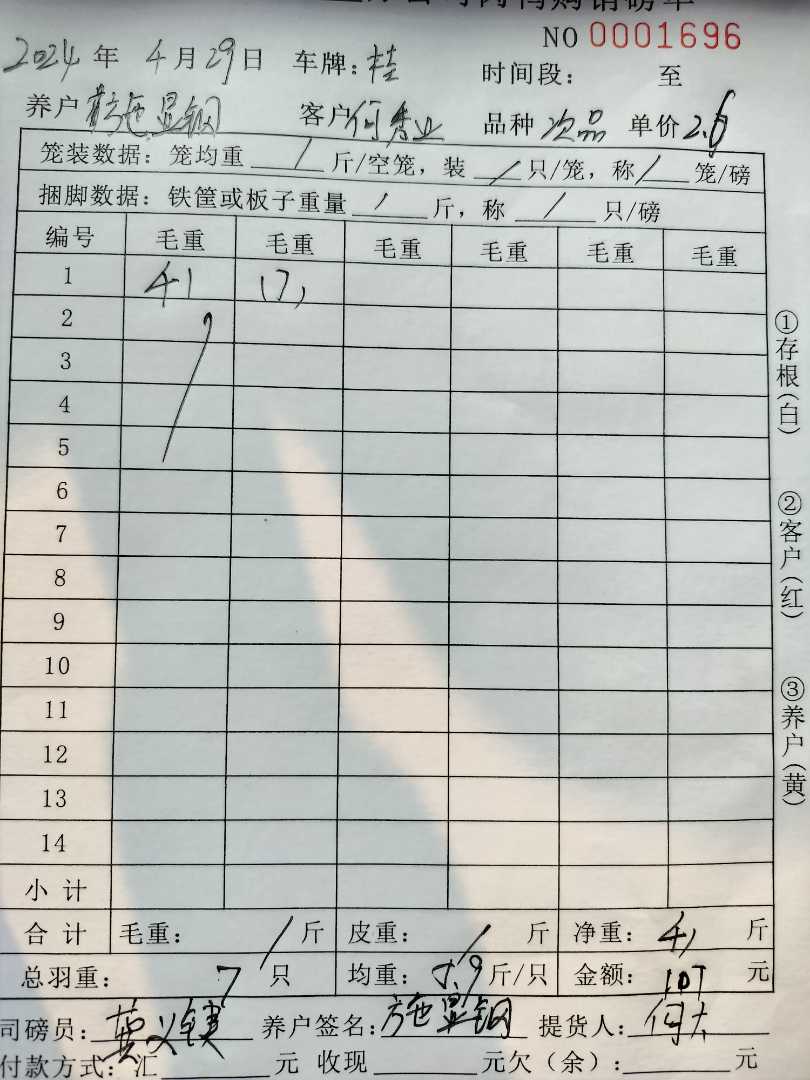 NO 0001696
2024 年 4 月 29 日 车牌: 桂 时间段: 至
养户 施显钢 客户 何秀业 品种 次品 单价 2.6
笼装数据: 笼均重 / 斤/空笼, 装 / 只/笼, 称 / 笼/磅
捆脚数据: 铁筐或板子重量 / 斤, 称 / 只/磅
编号 毛重 毛重 毛重 毛重 毛重 毛重
1 41 17,
2
3
4
5
6
7
8
9
10
11
12
13
14
小 计
合 计 毛重: / 斤 皮重: / 斤 净重: 41 斤
总羽重: 7 只 均重: 5.9 斤/只 金额: 107 元
司磅员: 养户签名: 施显钢 提货人: 何
付款方式: 汇 元 收现 元 欠(余): 元
①存根(白)
②客户(红)
③养户(黄)